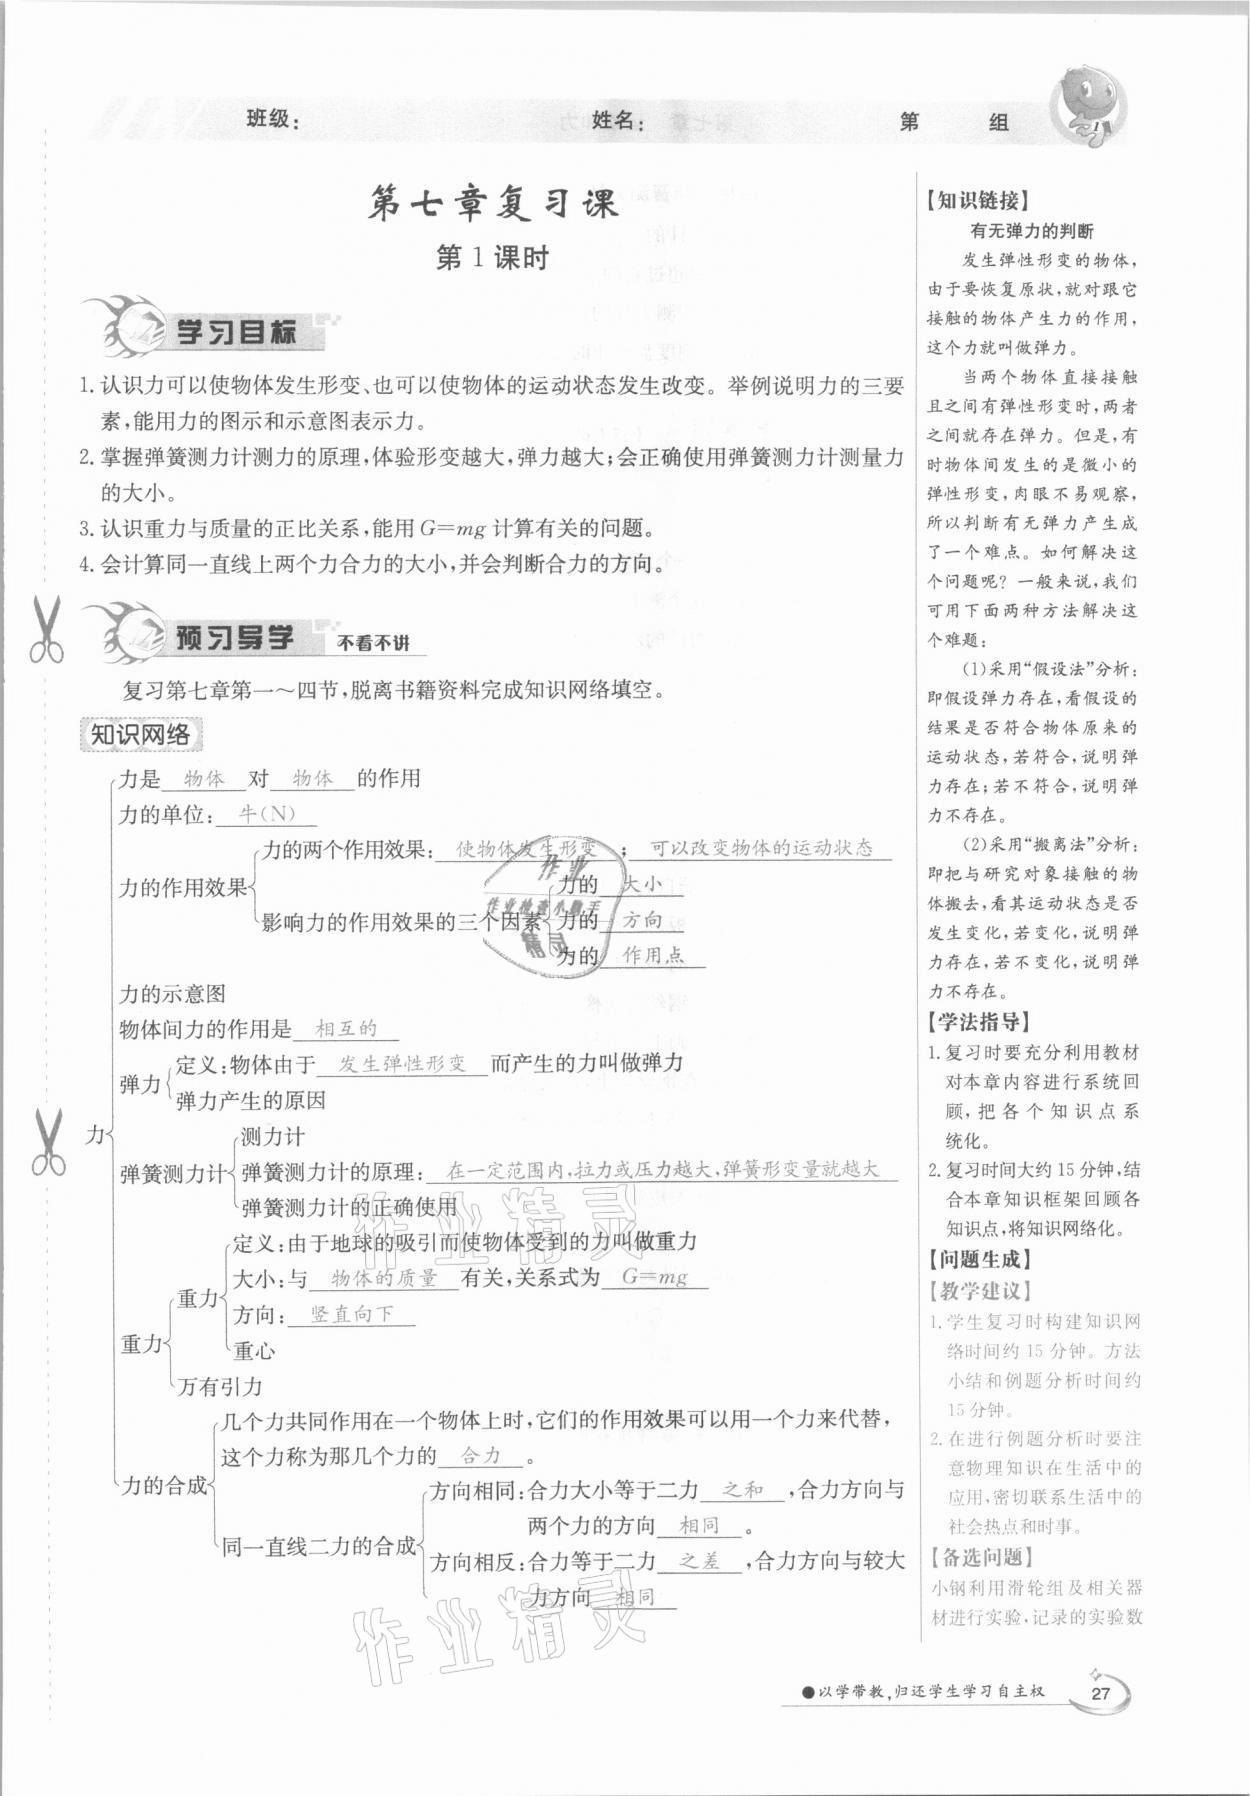 班级：
姓名：
第　　组
第七章复习课
第1课时
学习目标
1. 认识力可以使物体发生形变、也可以使物体的运动状态发生改变。举例说明力的三要
素,能用力的图示和示意图表示力。
2. 掌握弹簧测力计测力的原理,体验形变越大,弹力越大;会正确使用弹簧测力计测量力
的大小。
3. 认识重力与质量的正比关系,能用G=mg计算有关的问题。
4. 会计算同一直线上两个力合力的大小,并会判断合力的方向。
预习导学 不看不讲
复习第七章第一～四节,脱离书籍资料完成知识网络填空。
知识网络
力
力是 物体 对 物体 的作用
力的单位：牛(N)
力的作用效果
力的两个作用效果：使物体发生形变；可以改变物体的运动状态
影响力的作用效果的三个因素
力的 大小
力的 方向
力的 作用点
力的示意图
物体间力的作用是 相互的
弹力
定义：物体由于 发生弹性形变 而产生的力叫做弹力
弹力产生的原因
弹簧测力计
测力计
弹簧测力计的原理：在一定范围内,拉力或压力越大,弹簧形变量就越大
弹簧测力计的正确使用
重力
重力
定义：由于地球的吸引而使物体受到的力叫做重力
大小：与 物体的质量 有关,关系式为 G=mg
方向：竖直向下
重心
万有引力
力的合成
几个力共同作用在一个物体上时,它们的作用效果可以用一个力来代替,
这个力称为那几个力的 合力 。
同一直线二力的合成
方向相同：合力大小等于二力 之和 ,合力方向与
两个力的方向 相同 。
方向相反：合力等于二力 之差 ,合力方向与较大
力方向 相同
【知识链接】
有无弹力的判断
发生弹性形变的物体,
由于要恢复原状,就对跟它
接触的物体产生力的作用,
这个力就叫做弹力。
当两个物体直接接触
且之间有弹性形变时,两者
之间就存在弹力。但是,有
时物体间发生的是微小的
弹性形变,肉眼不易观察,
所以判断有无弹力产生成
了一个难点。如何解决这
个问题呢？一般来说,我们
可用下面两种方法解决这
个难题：
(1)采用“假设法”分析：
即假设弹力存在,看假设的
结果是否符合物体原来的
运动状态,若符合,说明弹
力存在;若不符合,说明弹
力不存在。
(2)采用“搬离法”分析：
即把与研究对象接触的物
体搬去,看其运动状态是否
发生变化,若变化,说明弹
力存在,若不变化,说明弹
力不存在。
【学法指导】
1. 复习时要充分利用教材
对本章内容进行系统回
顾,把各个知识点系
统化。
2. 复习时间大约15分钟,结
合本章知识框架回顾各
知识点,将知识网络化。
【问题生成】
【教学建议】
1. 学生复习时构建知识网
络时间约15分钟。方法
小结和例题分析时间约
15分钟。
2. 在进行例题分析时要注
意物理知识在生活中的
应用,密切联系生活中的
社会热点和时事。
【备选问题】
小钢利用滑轮组及相关器
材进行实验,记录的实验数
作业
作业检查小助手
精灵
作业精灵
作业精灵
●以学带教,归还学生学习自主权
27